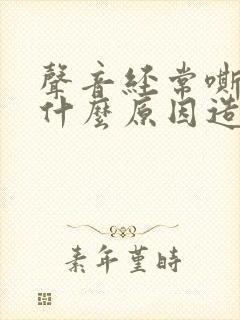 聲音經常嘶
什麼原因造
素年堇時